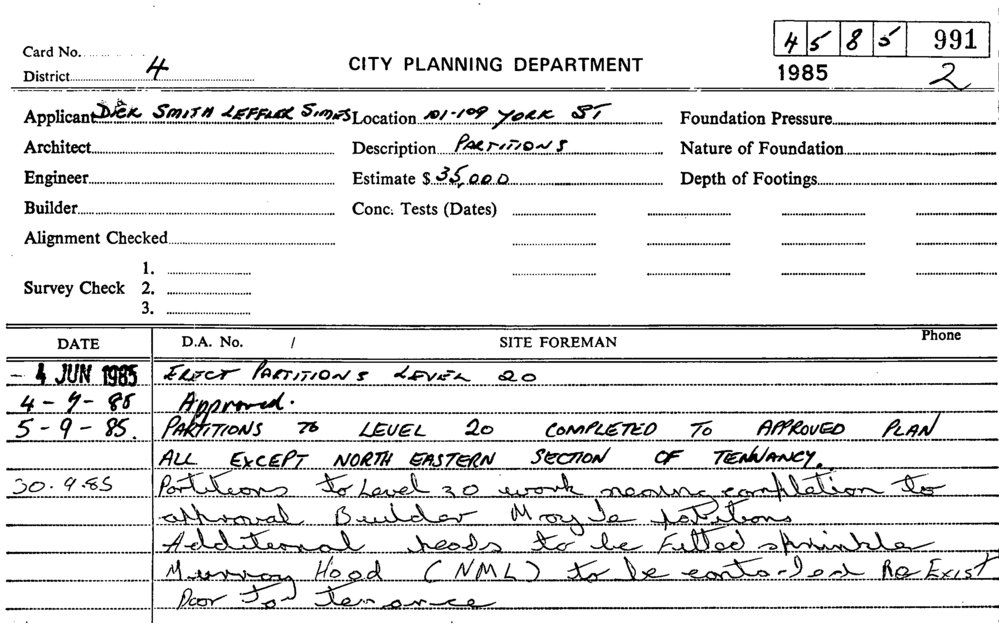 4 5 8 5 991
Card No.
District 4
CITY PLANNING DEPARTMENT
1985 2
Applicant Dick Smith Leffler Simes Location 101-109 York St Foundation Pressure
Architect Description Partitions Nature of Foundation
Engineer Estimate $ 35,000 Depth of Footings
Builder Conc. Tests (Dates)
Alignment Checked
1.
Survey Check 2.
3.
DATE D.A. No. / SITE FOREMAN Phone
- 4 JUN 1985 ERECT PARTITIONS LEVEL 20
Approved.
5-9-85. PARTITIONS TO LEVEL 20 COMPLETED TO APPROVED PLAN
ALL EXCEPT NORTH EASTERN SECTION OF TENNANCY.
30.9.85 Partitions to Level 20 work nearing completion to
approval Builder Moyle partitions
Additional heads to be Fitted sprinkler
Murray Hood (NML) to be Re Exist
Door to